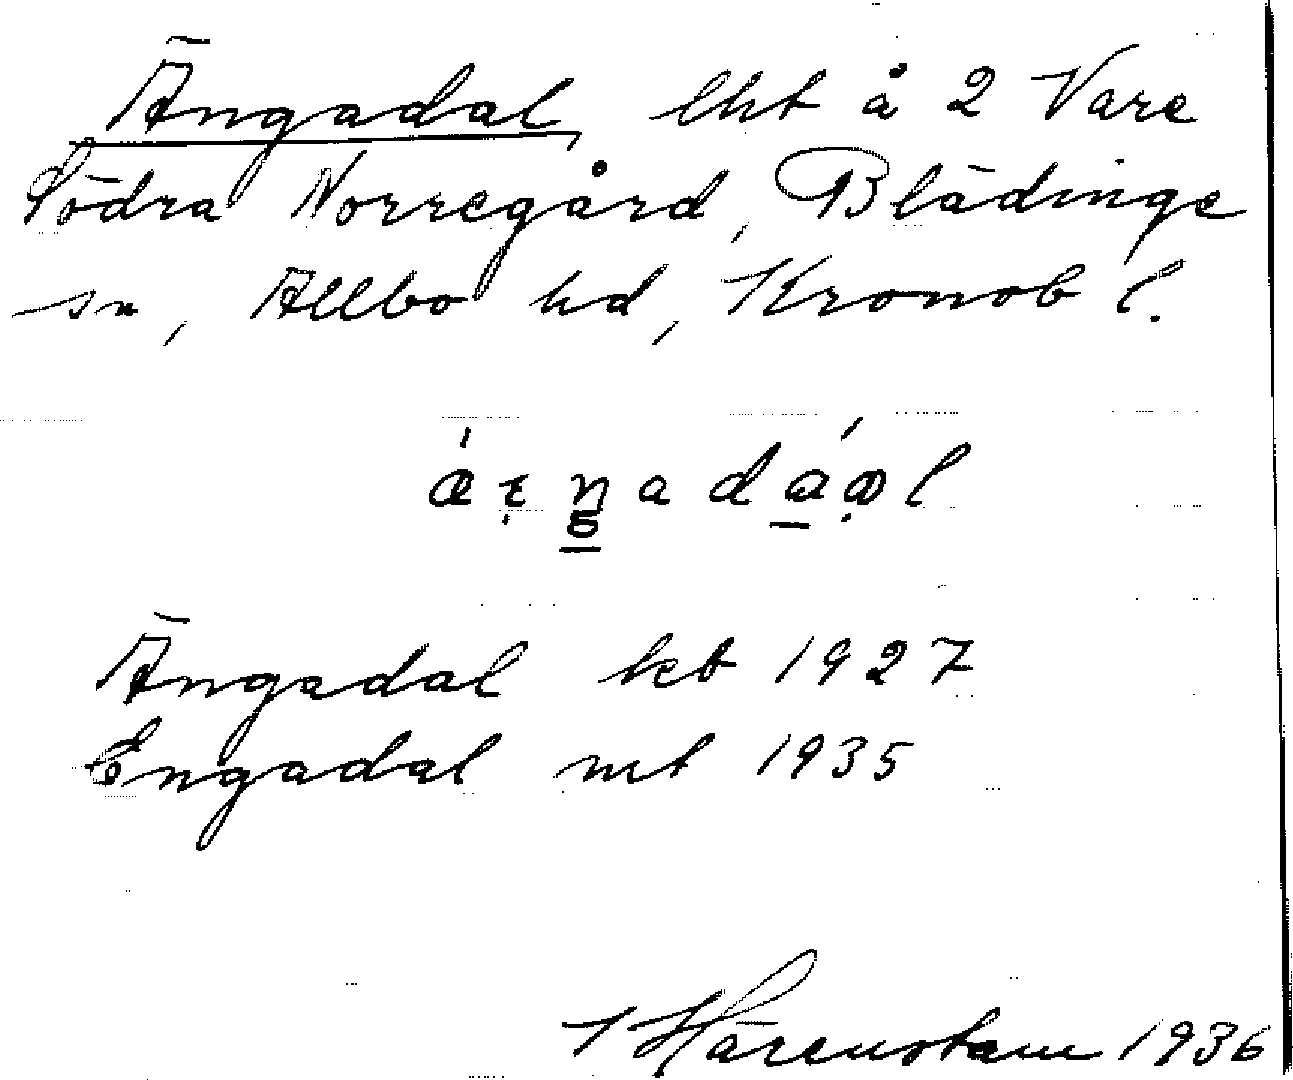 Ängadal, lht å 2 Vare
Södra Norregård, Blädinge
sn, Allbo hd, Kronob l.
Ängadal kb 1927
Engadal mt 1935
Härenstam 1936